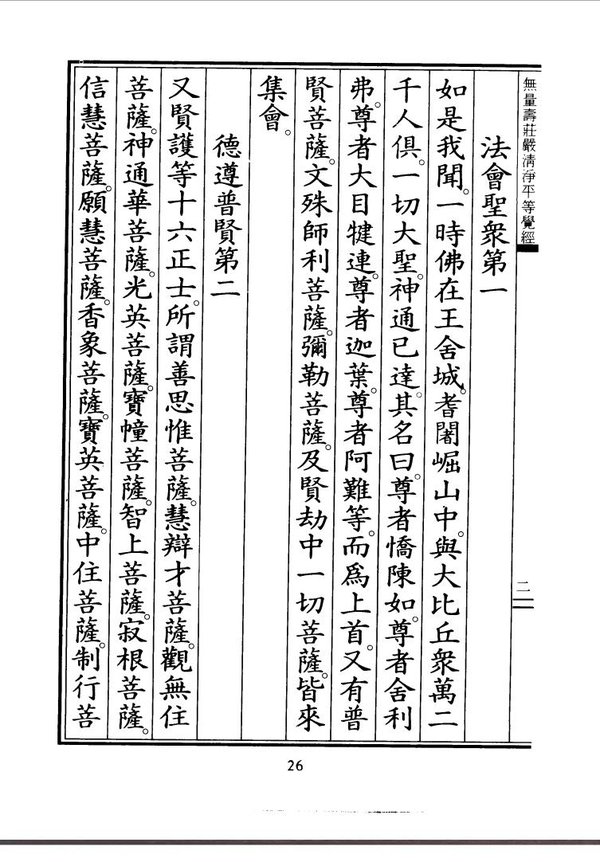 無量壽莊嚴淸淨平等覺經
二
法會聖衆第一
如是我聞。一時佛在王舍城。耆闍崛山中。與大比丘衆萬二
千人俱。一切大聖。神通已達。其名曰。尊者憍陳如。尊者舍利
弗。尊者大目犍連。尊者迦葉。尊者阿難等。而爲上首。又有普
賢菩薩。文殊師利菩薩。彌勒菩薩。及賢劫中一切菩薩。皆來
集會。
德遵普賢第二
又賢護等十六正士。所謂善思惟菩薩。慧辯才菩薩。觀無住
菩薩。神通華菩薩。光英菩薩。寶幢菩薩。智上菩薩。寂根菩薩。
信慧菩薩。願慧菩薩。香象菩薩。寶英菩薩。中住菩薩。制行菩
26